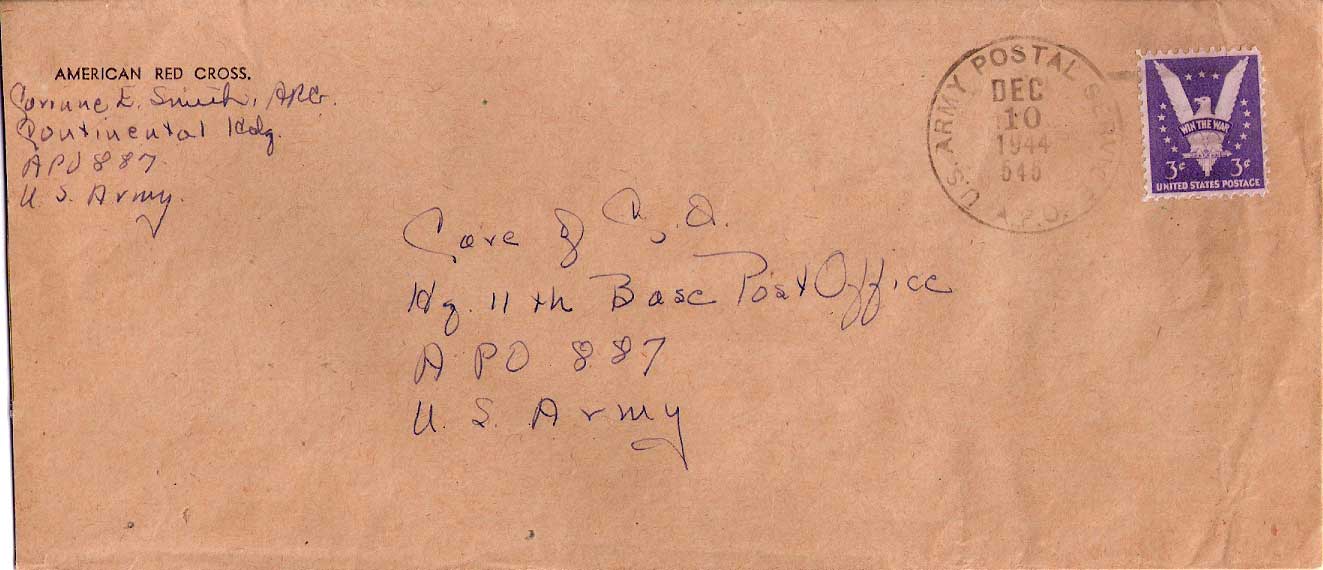 AMERICAN RED CROSS.
Corinne E. Smith, ARC.
Continental Hdq.
APO 887
U. S. Army.
U.S. ARMY POSTAL SERVICE
DEC
10
1944
A.P.O.
WIN THE WAR
3¢ 3¢
UNITED STATES POSTAGE
Care of C, O.
Hq. 11th Base Post Office
APO 887
U. S. Army